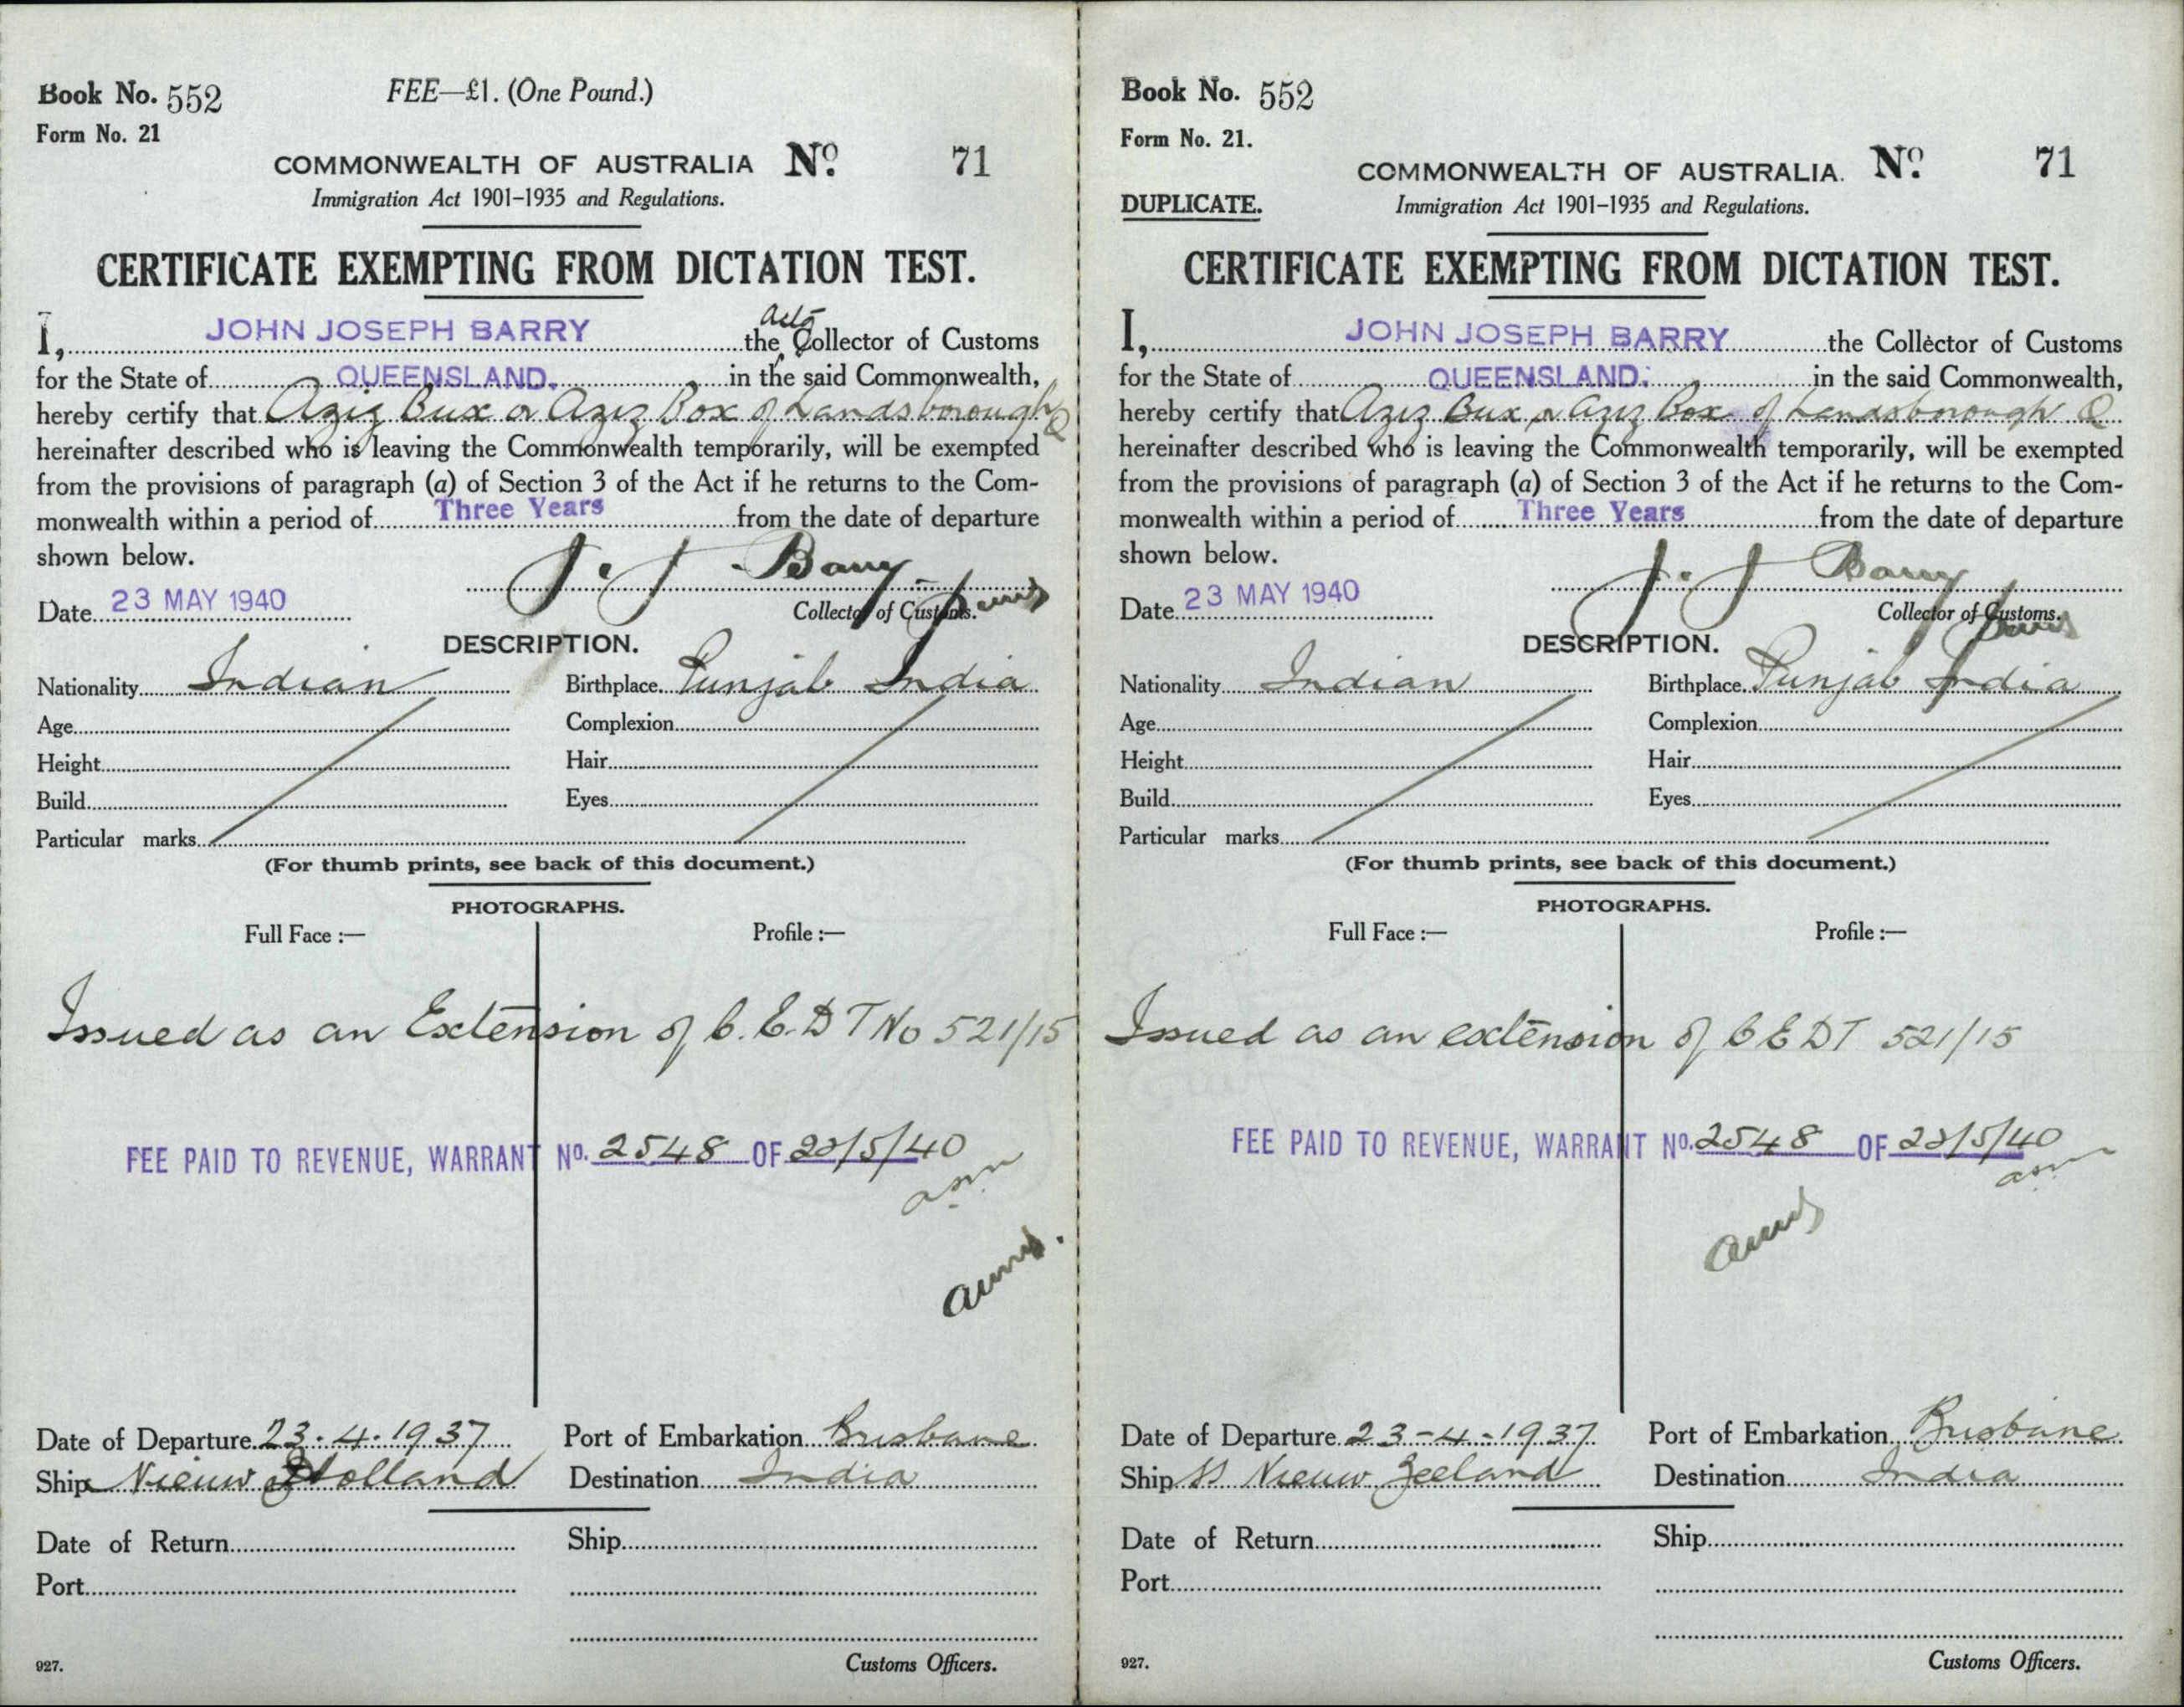 Book No. 552
FEE—£1. (One Pound.)
Form No. 21
COMMONWEALTH OF AUSTRALIA No. 71
Immigration Act 1901–1935 and Regulations.
CERTIFICATE EXEMPTING FROM DICTATION TEST.
I, JOHN JOSEPH BARRY the actg Collector of Customs
for the State of QUEENSLAND, in the said Commonwealth,
hereby certify that Aziz Bux or Aziz Box of Landsborough Q
hereinafter described who is leaving the Commonwealth temporarily, will be exempted
from the provisions of paragraph (a) of Section 3 of the Act if he returns to the Com-
monwealth within a period of Three Years from the date of departure
shown below.
J. J. Barry
Date 23 MAY 1940
Collector of Customs.
DESCRIPTION.
Nationality Indian Birthplace Punjab India
Age Complexion
Height Hair
Build Eyes
Particular marks
(For thumb prints, see back of this document.)
PHOTOGRAPHS.
Full Face :— Profile :—
Issued as an Extension of C.E.D T No 521/15
FEE PAID TO REVENUE, WARRANT No. 2548 OF 23/5/40
Date of Departure 23.4.1937 Port of Embarkation Brisbane
Ship Nieuw Holland Destination India
Date of Return Ship
Port
927. Customs Officers.
Book No. 552
Form No. 21.
COMMONWEALTH OF AUSTRALIA. No. 71
DUPLICATE. Immigration Act 1901–1935 and Regulations.
CERTIFICATE EXEMPTING FROM DICTATION TEST.
I, JOHN JOSEPH BARRY the Collector of Customs
for the State of QUEENSLAND. in the said Commonwealth,
hereby certify that Aziz Bux or Aziz Box of Landsborough Q
hereinafter described who is leaving the Commonwealth temporarily, will be exempted
from the provisions of paragraph (a) of Section 3 of the Act if he returns to the Com-
monwealth within a period of Three Years from the date of departure
shown below.
J. J Barry
Date 23 MAY 1940
Collector of Customs.
DESCRIPTION.
Nationality Indian Birthplace Punjab India
Age Complexion
Height Hair
Build Eyes
Particular marks
(For thumb prints, see back of this document.)
PHOTOGRAPHS.
Full Face :— Profile :—
Issued as an extension of C E DT 521/15
FEE PAID TO REVENUE, WARRANT No. 2548 OF 23/5/40
Date of Departure 23-4-1937 Port of Embarkation Brisbane
Ship SS Nieuw Zeeland Destination India
Date of Return Ship
Port
927. Customs Officers.